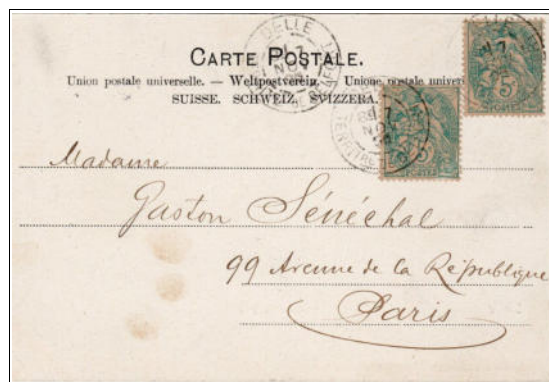 CARTE POSTALE.
Union postale universelle. — Weltpostverein. — Unione postale univers
SUISSE. SCHWEIZ. SVIZZERA.
DELLE
7
NOV
DELLE
5
7
NOV
5
Madame
Gaston Sénéchal
99 Avenue de la République
Paris